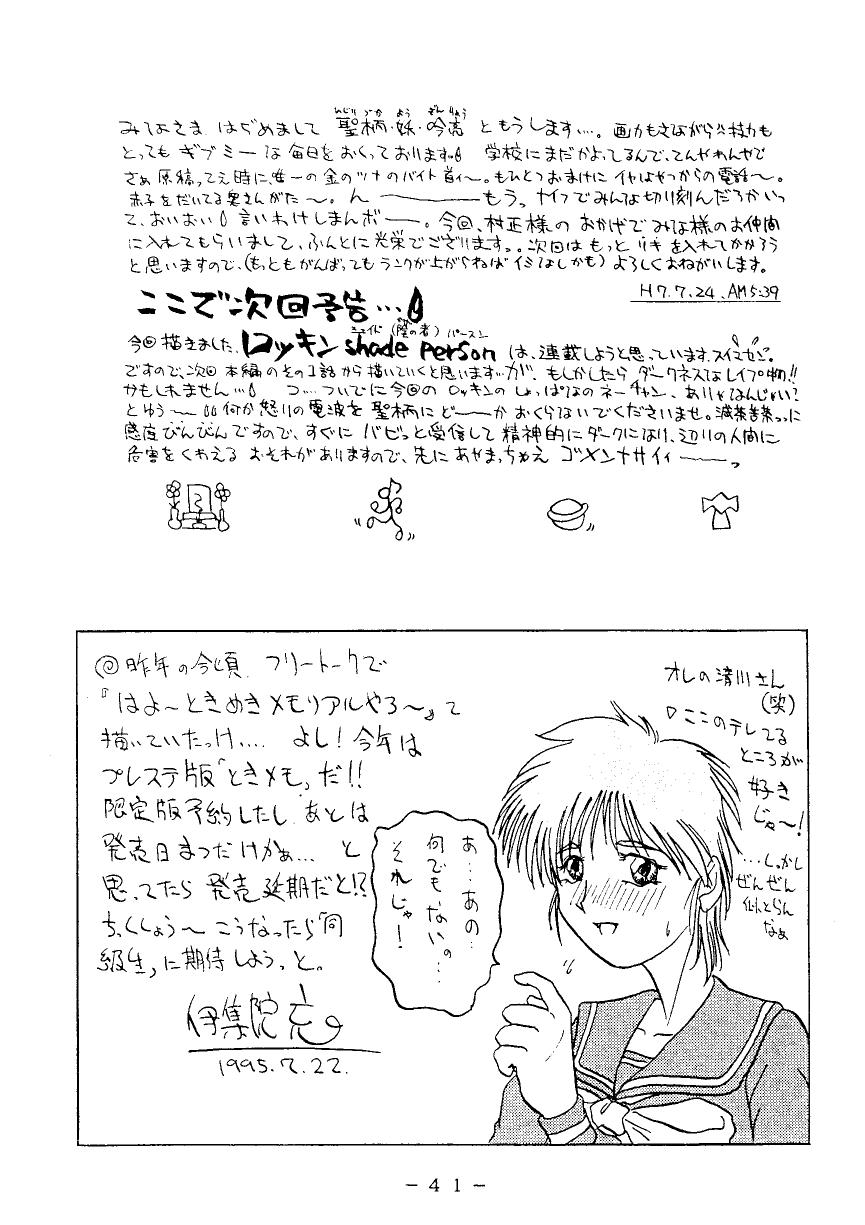 ひじりづか よう ぎんりょう
みなさま はぢめまして 聖柄・妖・吟亮 ともうします…。画力もさながら公技力も
とっても ギブミーな毎日をおくっております 学校にまだかよってるんで、てんやわんやで
さぁ原稿ってえ時に、唯一の金のツナのバイト首ィ〜。もひとつおまけに イヤなやつからの電話〜。
赤子をだいてる奥さんがた〜。ん〜 もうっ ナイフでみんな切り刻んだろかいっ
て、おいおい 言いわけしまんボー。今回、村正様のおかげでみな様のお仲間
に入れてもらいまして、ふんとに光栄でございますっ。次回はもっとリキを入れてかかろう
と思いますので、(もっともがんばってもランクが上がらねばイミなしかも)よろしくおねがいします。
H7.7.24.AM5:39
ここで次回予告…
シェイド(陰の者)パースン
今回描きました、ロッキン shade personは、連載しようと思っています。スイマセン。
ですので、次回 本編のその1話から描いていくと思います…が、もしかしたら ダークネスなレイプ物!!
かもしれません… つ…ついでに今回の ロッキンの しょっぱなのネーチャン、ありゃなんじゃい?
とゆう〜 何か怒りの電波を聖柄にど〜かおくらないでくださいませ。滅茶苦茶っに
感度びんびんですので、すぐに バビっと受信して 精神的にダークになり、辺りの人間に
危害をくわえる おそれがありますので、先にあやまっちゃえ ゴメンナサイィーっ
◎昨年の今頃 フリートークで
『はよ〜ときめきメモリアルやろ〜』て
描いていたっけ…. よし!今年は
プレステ版「ときメモ」だ!!
限定版予約したし あとは
発売日まつだけかぁ… と
思ってたら 発売延期だと!?
ちっくしょう〜 こうなったら「同
級生」に期待しようっと。
伊集院
1995.7.22.
オレの清川さん
(笑)
ここのテレてる
ところが
好き
じゃ〜!
…しかし
ぜんぜん
似とらん
なぁ
あ…あの…
何でもないの…
それじゃ!
－41－